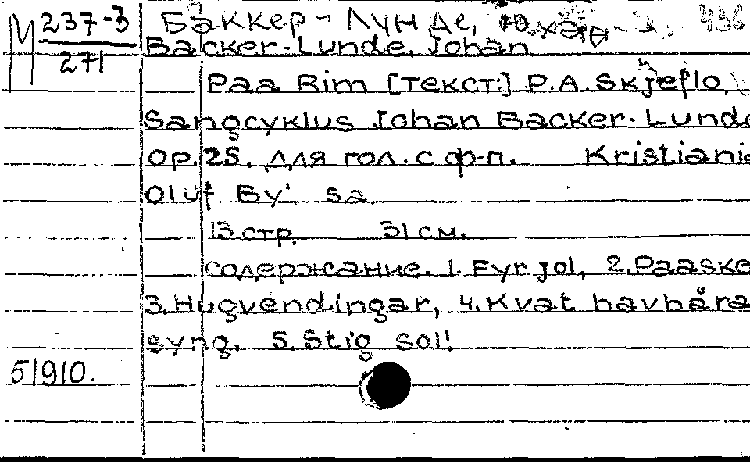 М 237-3 Баккер-Лунде, Юхан 436
271 Backer-Lunde, Johan
Paa Rim [текст:] P.A. Skjeflo,
Sangcyklus Johan Backer-Lunde
op.25. для гол. с ф-п. Kristiania
Oluf By' sa
13 стр. 31 см.
содержание. 1. Fyrjol, 2. Paaske
3. Hugvendingar, 4. Kvat havbåra
syng. 5. Stig sol!
51910.